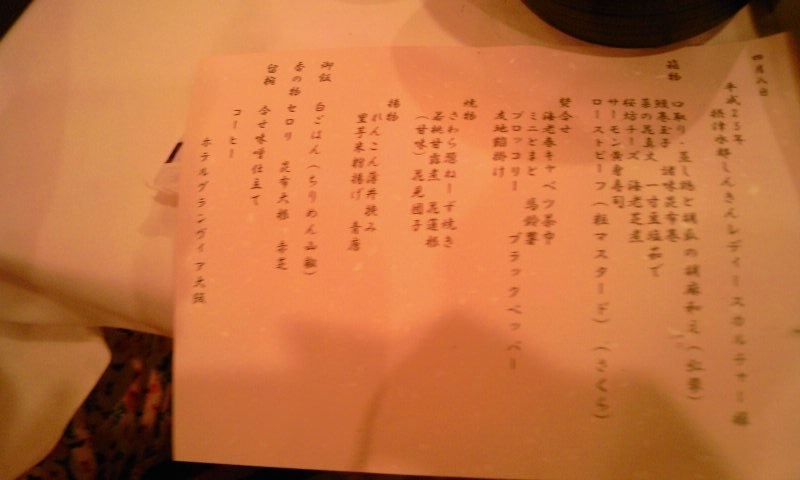 四月八日
平成25年
摂津水都しんきんレディースカルチャー様
箱物
口取り・蒸し鶏と胡瓜の胡麻和え（紅葉）
鰻巻玉子 諸味昆布巻
菜の花真丈 一寸豆塩茹で
桜坊チーズ 海老芝煮
サーモン黄身寿司
ローストビーフ（粒マスタード）（さくら）
焚合せ
海老春キャベツ茶巾
ミニとまと 馬鈴薯
ブロッコリー ブラックペッパー
美地餡掛け
焼物
さわら葱ねーず焼き
若桃甘露煮 花蓮根
（甘味）花見団子
揚物
れんこん薄井挟み
里芋米粉揚げ 青唐
御飯
白ごはん（ちりめん山椒）
香の物 セロリ 昆布大根 赤芝
留椀 合せ味噌仕立て
コーヒー
ホテルグランヴィア大阪